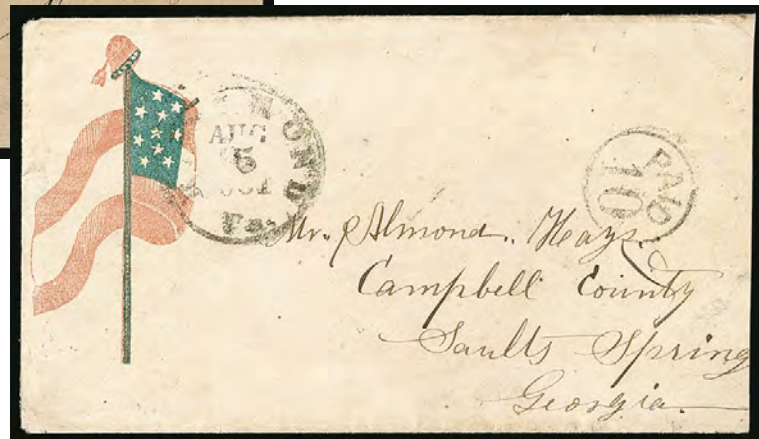 RICHMOND
AUG
5
1861
Va.
PAID
10
Mr. Almond. Hays.
Campbell County
Saults Spring
Georgia.